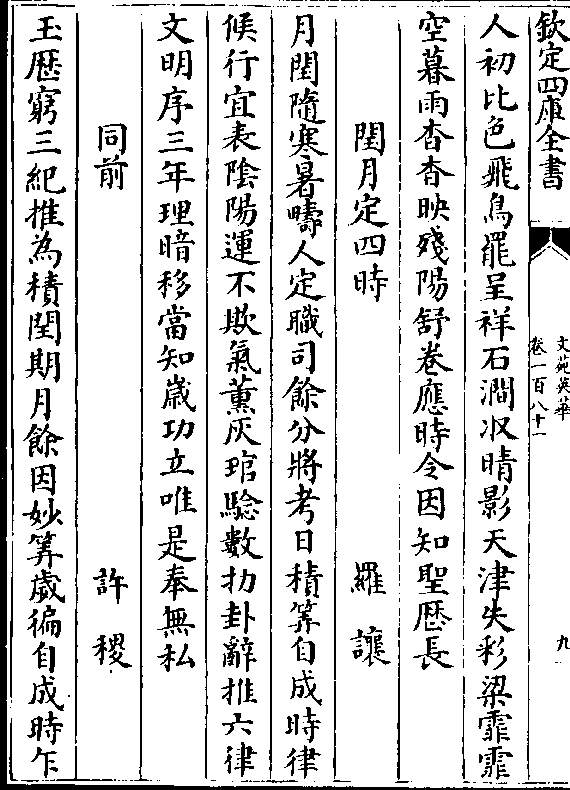 欽定四庫全書
文苑英華
卷一百八十一
九
人初比色飛鳥罷呈祥石澗収晴影天津失彩梁霏霏
空暮雨杳杳映殘陽舒卷應時令因知聖歴長
閏月定四時
羅讓
月閏隨寒暑疇人定職司餘分將考日積筭自成時律
候行宜表陰陽運不欺氣薰灰琯驗數扐卦辭推六律
文明序三年理暗移當知歳功立唯是奉無私
同前
許稷
玉歴窮三紀推為積閏期月餘因妙筭歲徧自成時乍